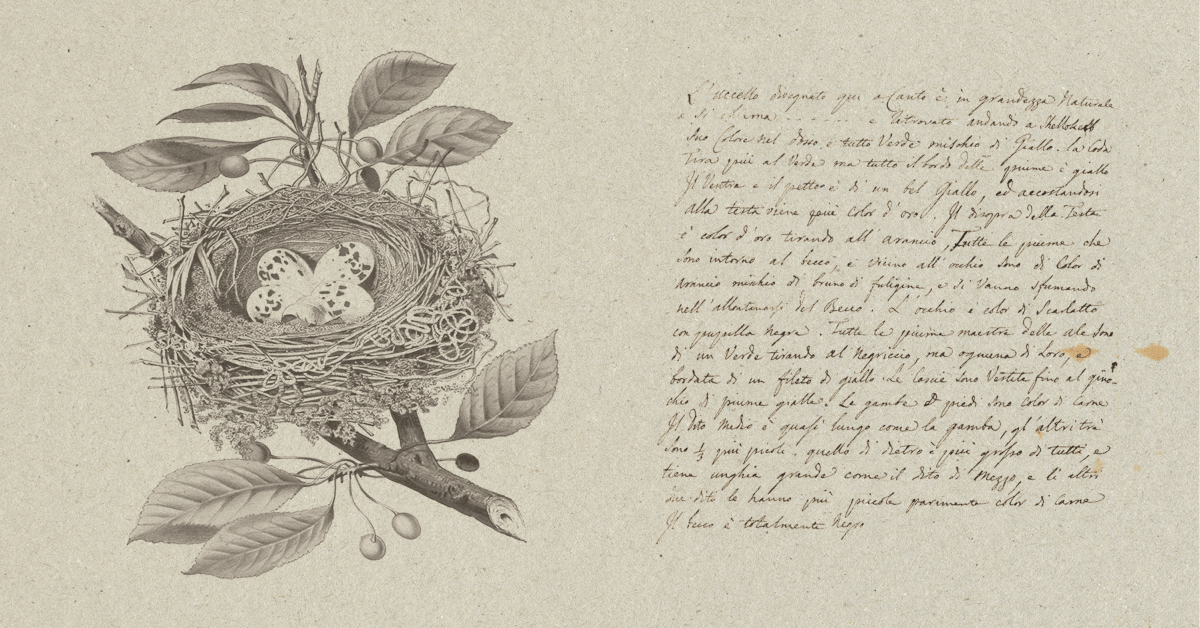 L'uccello disegnato qui a canto è in grandezza Naturale
e si chiama - - - - - - - e l'ò trovato andando a
Suo Colore nel dosso, è tutto Verde mischio di Giallo. la Coda
Tira più al Verde ma tutto il bordo delle piume è giallo
Il Ventre e il petto è di un bel Giallo, ed accostandosi
alla testa viene più Color d'oro. Il disopra della Testa
è color d'oro tirando all'arancio, Tutte le piume che
sono intorno al becco, e vicino all'occhio sono di Color di
arancio mischio di bruno di fuligine, e si vanno sfumando
nell'allontanarsi del Becco. L'occhio è color di Scarlatto
con pupilla Negra. Tutte le piume maestre delle ale sono
di un Verde tirando al Negriccio, ma ognuna di Loro, e
bordata di un fileto di giallo. Le Coscie sono Vestite fino al gino-
chio di piume gialle. Le gambe e piedi sono Color di Carne
Il Dito Medio è quasi lungo come la gamba, gl'altri trè
sono ⅓ più picoli. quello di dietro è più grosso di tutti, e
tiene unghia grande come il dito di Mezzo, e li altri
due dito le hanno più picole parimente color di Carne
Il becco è totalmente Negro